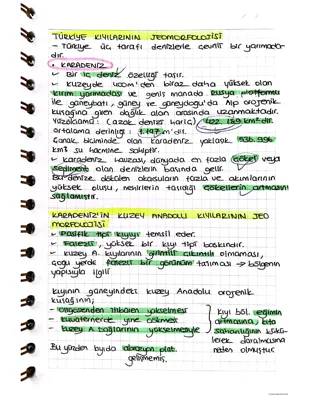 TÜRKİYE KIYILARININ JEOMORFOLOJİSİ
- Türkiye üç tarafı denizlerle çevrili bir yarımada-
dır.
• KARADENİZ
✓ Bir iç deniz özelliği taşır.
✓ Kuzeyde 400m'den biraz daha yüksek olan
Kırım yarımadası ve geniş manada Rusya platformu
ile güneybatı, güney ve güneydoğu'da Alp orojenik
kuşağına giren dağlık alan arasında uzanmaktadır.
Yüzölçümü: (azak denizi hariç) 422.189 km² dir.
ortalama derinliği: 1.197 m'dir.
Çanak biçiminde olan Karadeniz yaklaşık 536.996
km³ su hacmine sahiptir.
✓ Karadeniz havzası, dünyada en fazla çökel veya
sediment olan denizlerin başında gelir.
Bu denize dökülen akarsuların fazla ve akımlarının
yüksek oluşu, nehirlerin taşıdığı çökellerin artmasını
sağlamıştır.
KARADENİZ'İN KUZEY ANADOLU KIYILARININ JEO
MORFOLOJİSİ
✓ Pasifik tipi kıyıyı temsil eder.
✓ Falezli, yüksek bir kıyı tipi baskındır.
✓ Kuzey A. kıyılarının girintili çıkıntılı olmaması,
çoğu yerde falezli bir görünüm taşıması → bölgenin
yapısıyla ilgili
Kıyının güneyindeki Kuzey Anadolu orojenik
kuşağının;
- Oligosenden itibaren yükselmesi
- Kuvaternerde yine çökmesi
- Kuzey A. Dağlarının yükselmesiyle
Kıyı böl. eğimin
artmasına, kıta
sahanlığının
lerek daralmasına
neden olmuştur
Bu yüzden burada abrazyon plat.
gelişmemiş.